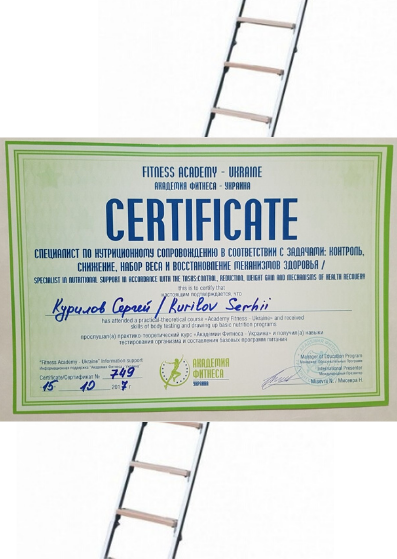 FITNESS ACADEMY - UKRAINE
АКАДЕМИЯ ФИТНЕСА - УКРАИНА
CERTIFICATE
СПЕЦИАЛИСТ ПО НУТРИЦИОННОМУ СОПРОВОЖДЕНИЮ В СООТВЕТСТВИИ С ЗАДАЧАМИ: КОНТРОЛЬ,
СНИЖЕНИЕ, НАБОР ВЕСА И ВОССТАНОВЛЕНИЕ МЕХАНИЗМОВ ЗДОРОВЬЯ /
SPECIALIST IN NUTRITIONAL SUPPORT IN ACCORDANCE WITH THE TASKS: CONTROL, REDUCTION, WEIGHT GAIN AND MECHANISMS OF HEALTH RECOVERY
this is to certify that
настоящим подтверждается, что
Курилов Сергей / Kurilov Serhii
has attended a practical-theoretical course «Academy Fitness - Ukraine» and received
skills of body testing and drawing up basic nutrition programs
прослушал(а) практико-теоретический курс «Академии Фитнеса - Украина» и получил(а) навыки
тестирования организма и составления базовых программ питания
"Fitness Academy - Ukraine" information support
Certificate/Сертификат № 749
15 10 2017
АКАДЕМИЯ
ФИТНЕСА
УКРАИНА
Manager of Education Program
International Presenter